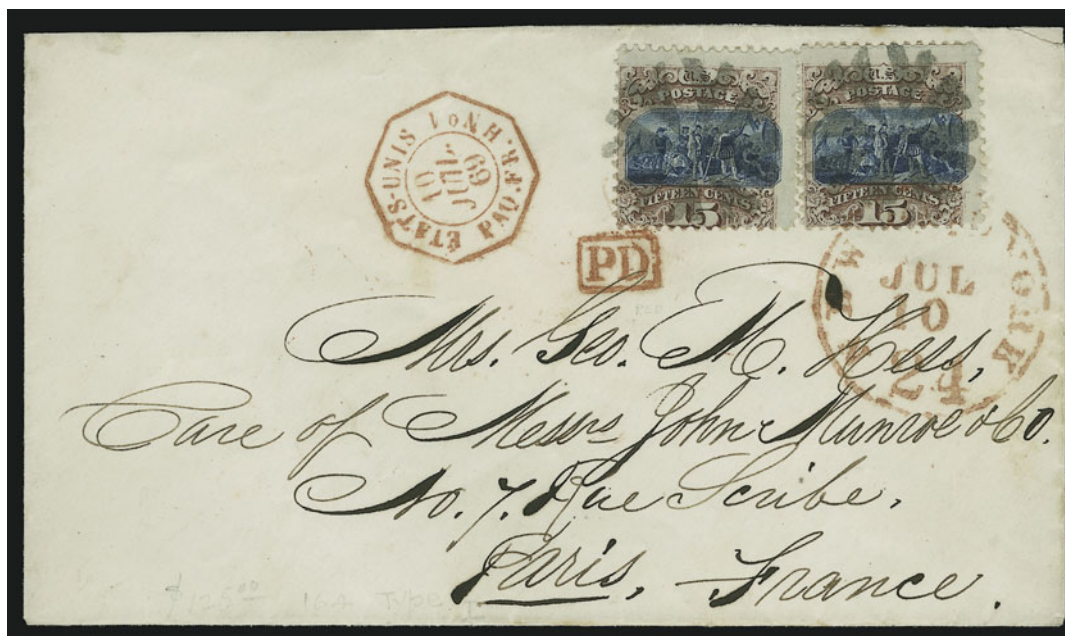 U.S. POSTAGE
FIFTEEN CENTS
15
U.S. POSTAGE
FIFTEEN CENTS
15
ÉTATS-UNIS PAQ.FR.H No1
10
JUIL.
69
PD
NEW YORK
JUL
10
24
Mrs. Geo. M. Hess,
Care of Messrs John Munroe & Co.
No. 7. Rue Scribe,
Paris, France.
$125.00 164 Type I